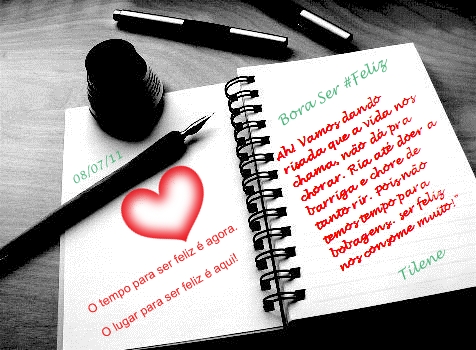 08/07/11
O tempo para ser feliz é agora.
O lugar para ser feliz é aqui!
Bora Ser #Feliz
Ah! Vamos dando
risada que a vida nos
chama, não dá pra
chorar. Ria até doer a
barriga e chore de
tanto rir. Pois não
temos tempo para
bobagens. ser feliz
nos consome muito!"
Tilene